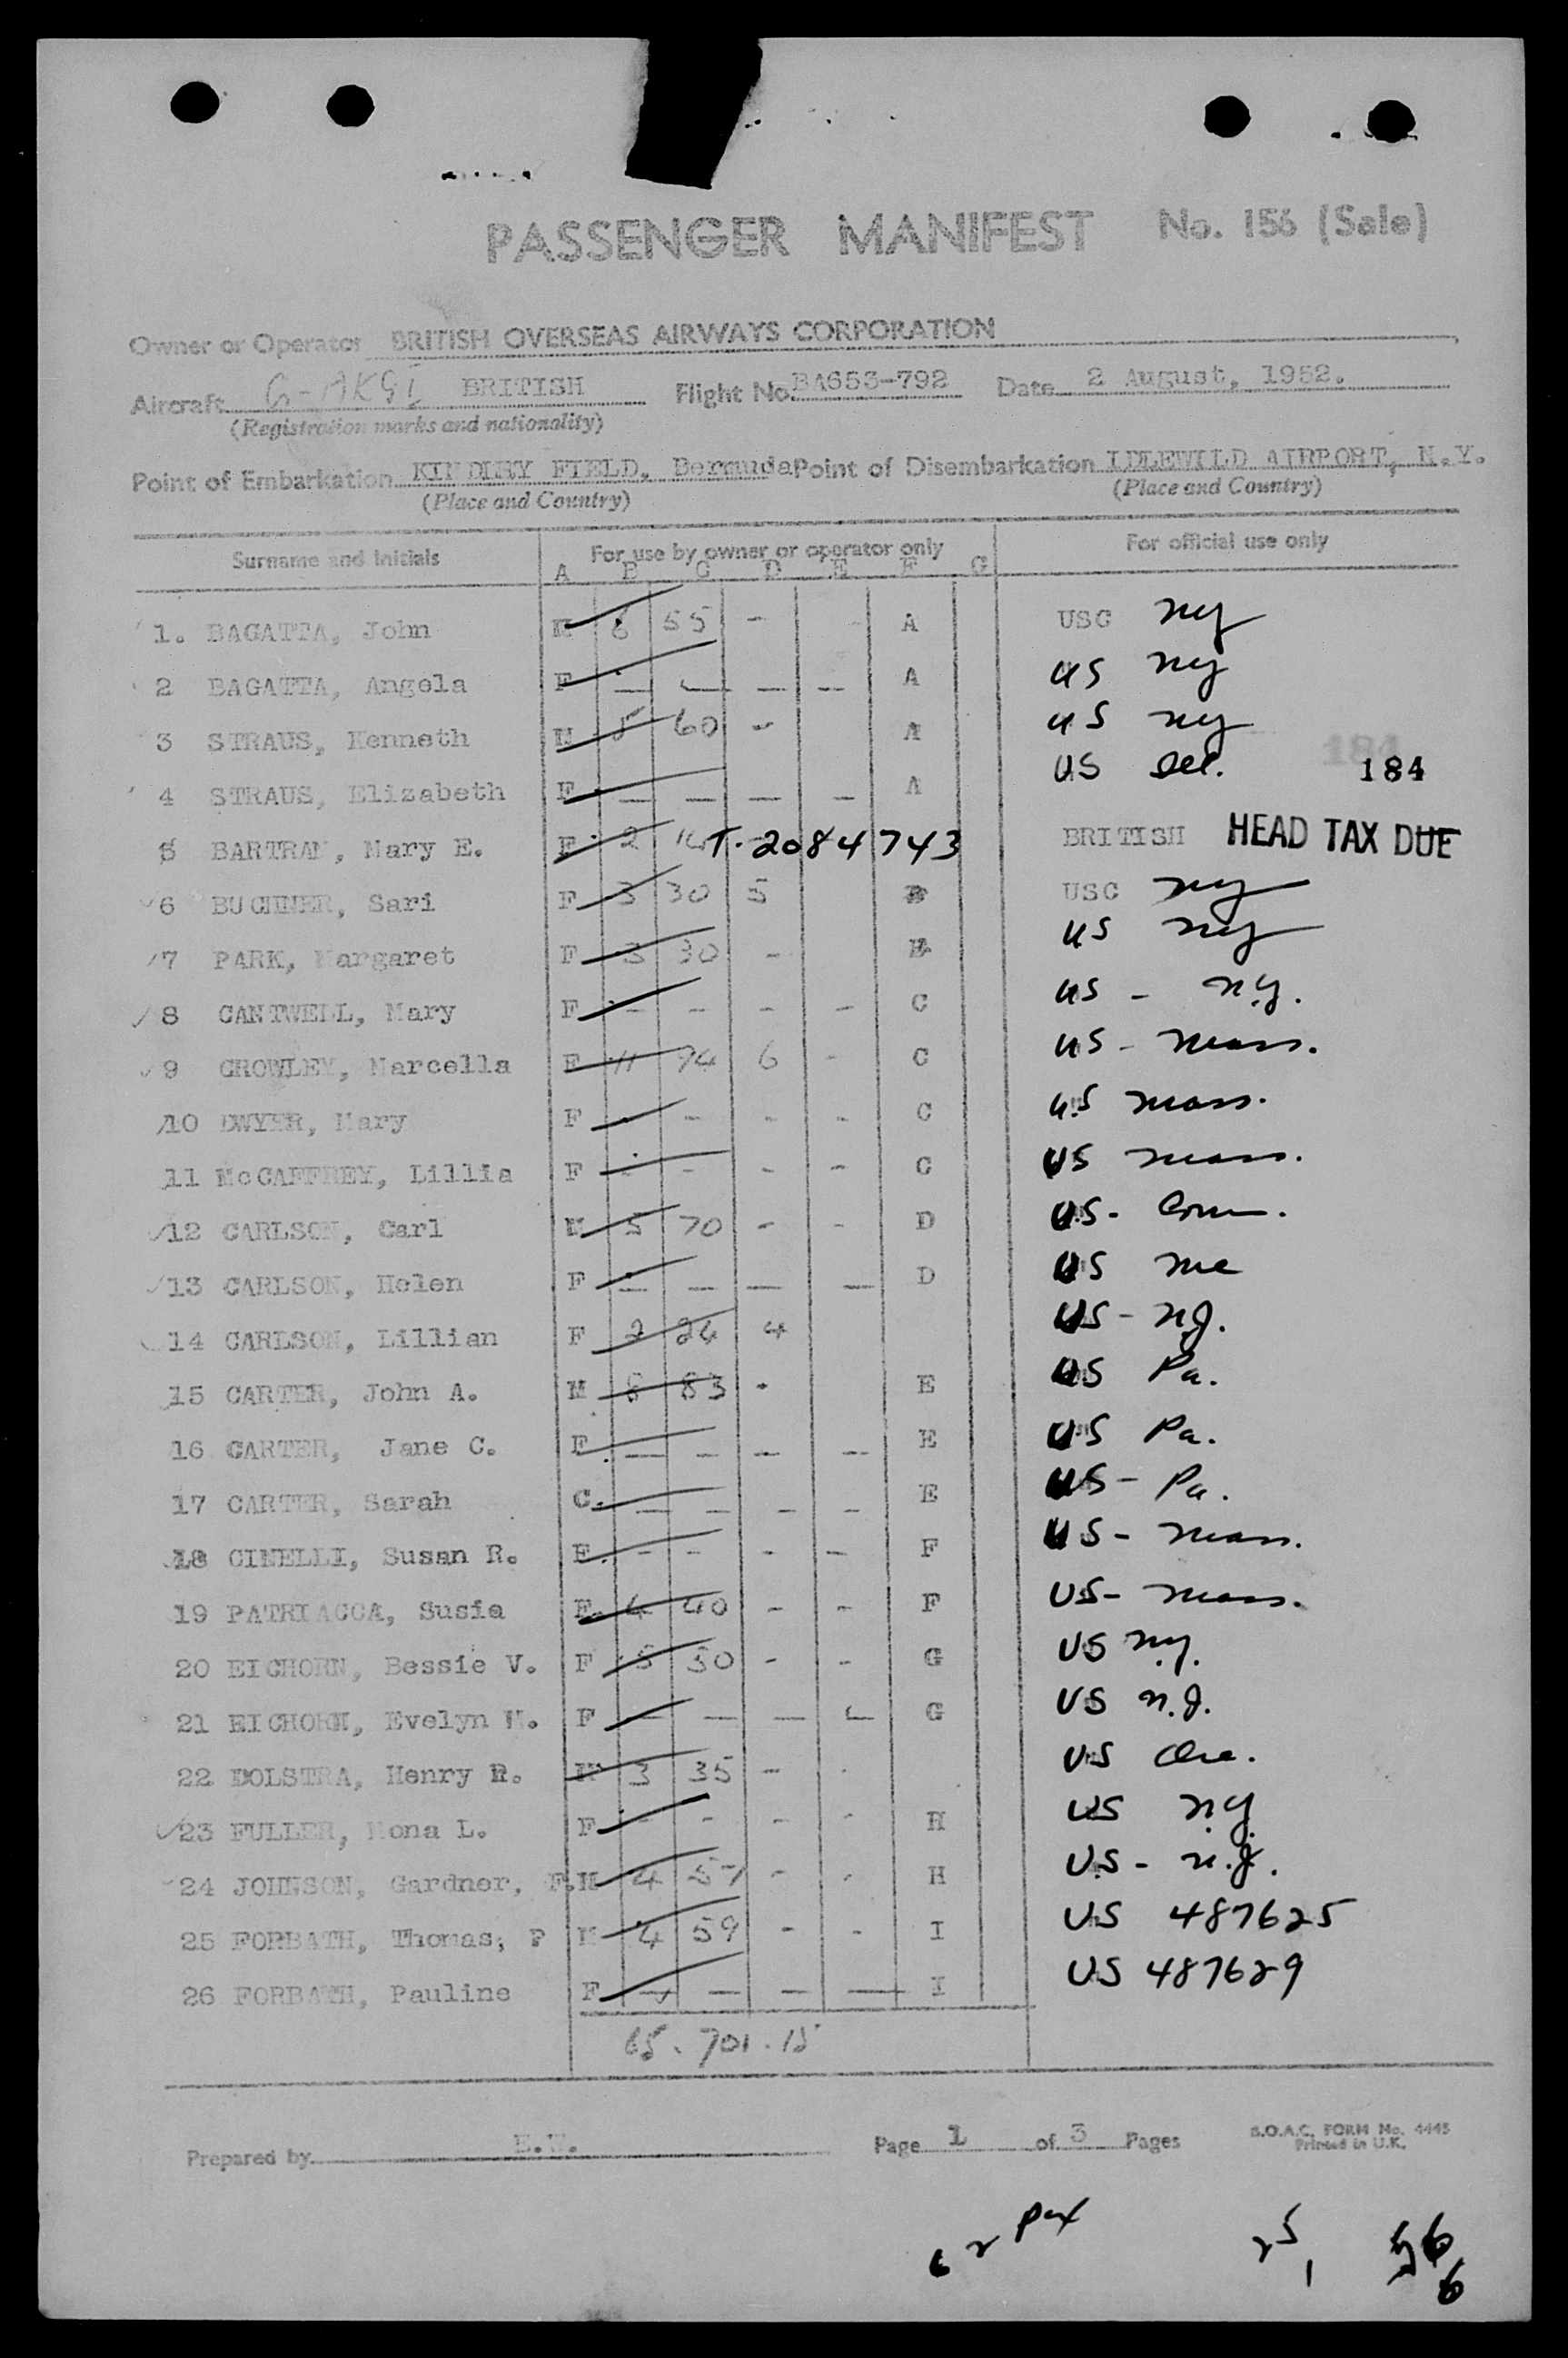 PASSENGER MANIFEST No. 156 (Sale)
Owner or Operator BRITISH OVERSEAS AIRWAYS CORPORATION
Aircraft G-AKGI BRITISH Flight No. BA653-792 Date 2 August, 1952.
(Registration marks and nationality)
Point of Embarkation KINDLEY FIELD, Bermuda Point of Disembarkation IDLEWILD AIRPORT, N.Y.
(Place and Country) (Place and Country)
Surname and Initials For use by owner or operator only For official use only
A B C D E F G
1. BAGATTA, John M 6 55 - A USC NY
2 BAGATTA, Angela F - - - - A US NY
3 STRAUS, Kenneth M 5 60 - A US NY
4 STRAUS, Elizabeth F - - - - A US Del. 184
5 BARTRAM, Mary E. F 2 T-2084743 BRITISH HEAD TAX DUE
6 BUCHNER, Sari F 3 30 5 B USC NY
7 PARK, Margaret F 3 30 - US NY
8 CANTWELL, Mary F - - - - C US - N.Y.
9 CROWLEY, Marcella F 11 94 6 - C US - Mass.
10 DWYER, Mary F - - - - C US Mass.
11 McCAFFREY, Lillia F - - - - C US Mass.
12 CARLSON, Carl M 5 70 - - D US - Conn.
13 CARLSON, Helen F - - - - D US Me
14 CARLSON, Lillian F 2 24 4 US - N.J.
15 CARTER, John A. M 8 83 - E US Pa.
16 CARTER, Jane C. F - - - - E US Pa.
17 CARTER, Sarah C. - - - - E US - Pa.
18 CINELLI, Susan R. F. - - - - F US - Mass.
19 PATRIACCA, Susie F. 4 40 - - F US - Mass.
20 EICHORN, Bessie V. F 5 50 - - G US N.Y.
21 EICHORN, Evelyn M. F - - - - G US N.J.
22 DOLSTRA, Henry R. M 3 35 - - US Ore.
23 FULLER, Mona L. F - - - - H US N.Y.
24 JOHNSON, Gardner, F. M 4 57 - - H US - N.J.
25 FORBATH, Thomas, P M 4 59 - - I US 487625
26 FORBATH, Pauline F - - - - I US 487629
65. 701. 15
Prepared by Page 1 of 3 Pages B.O.A.C. FORM No. 4445
Printed in U.K.
62 pax 25 56
1 6